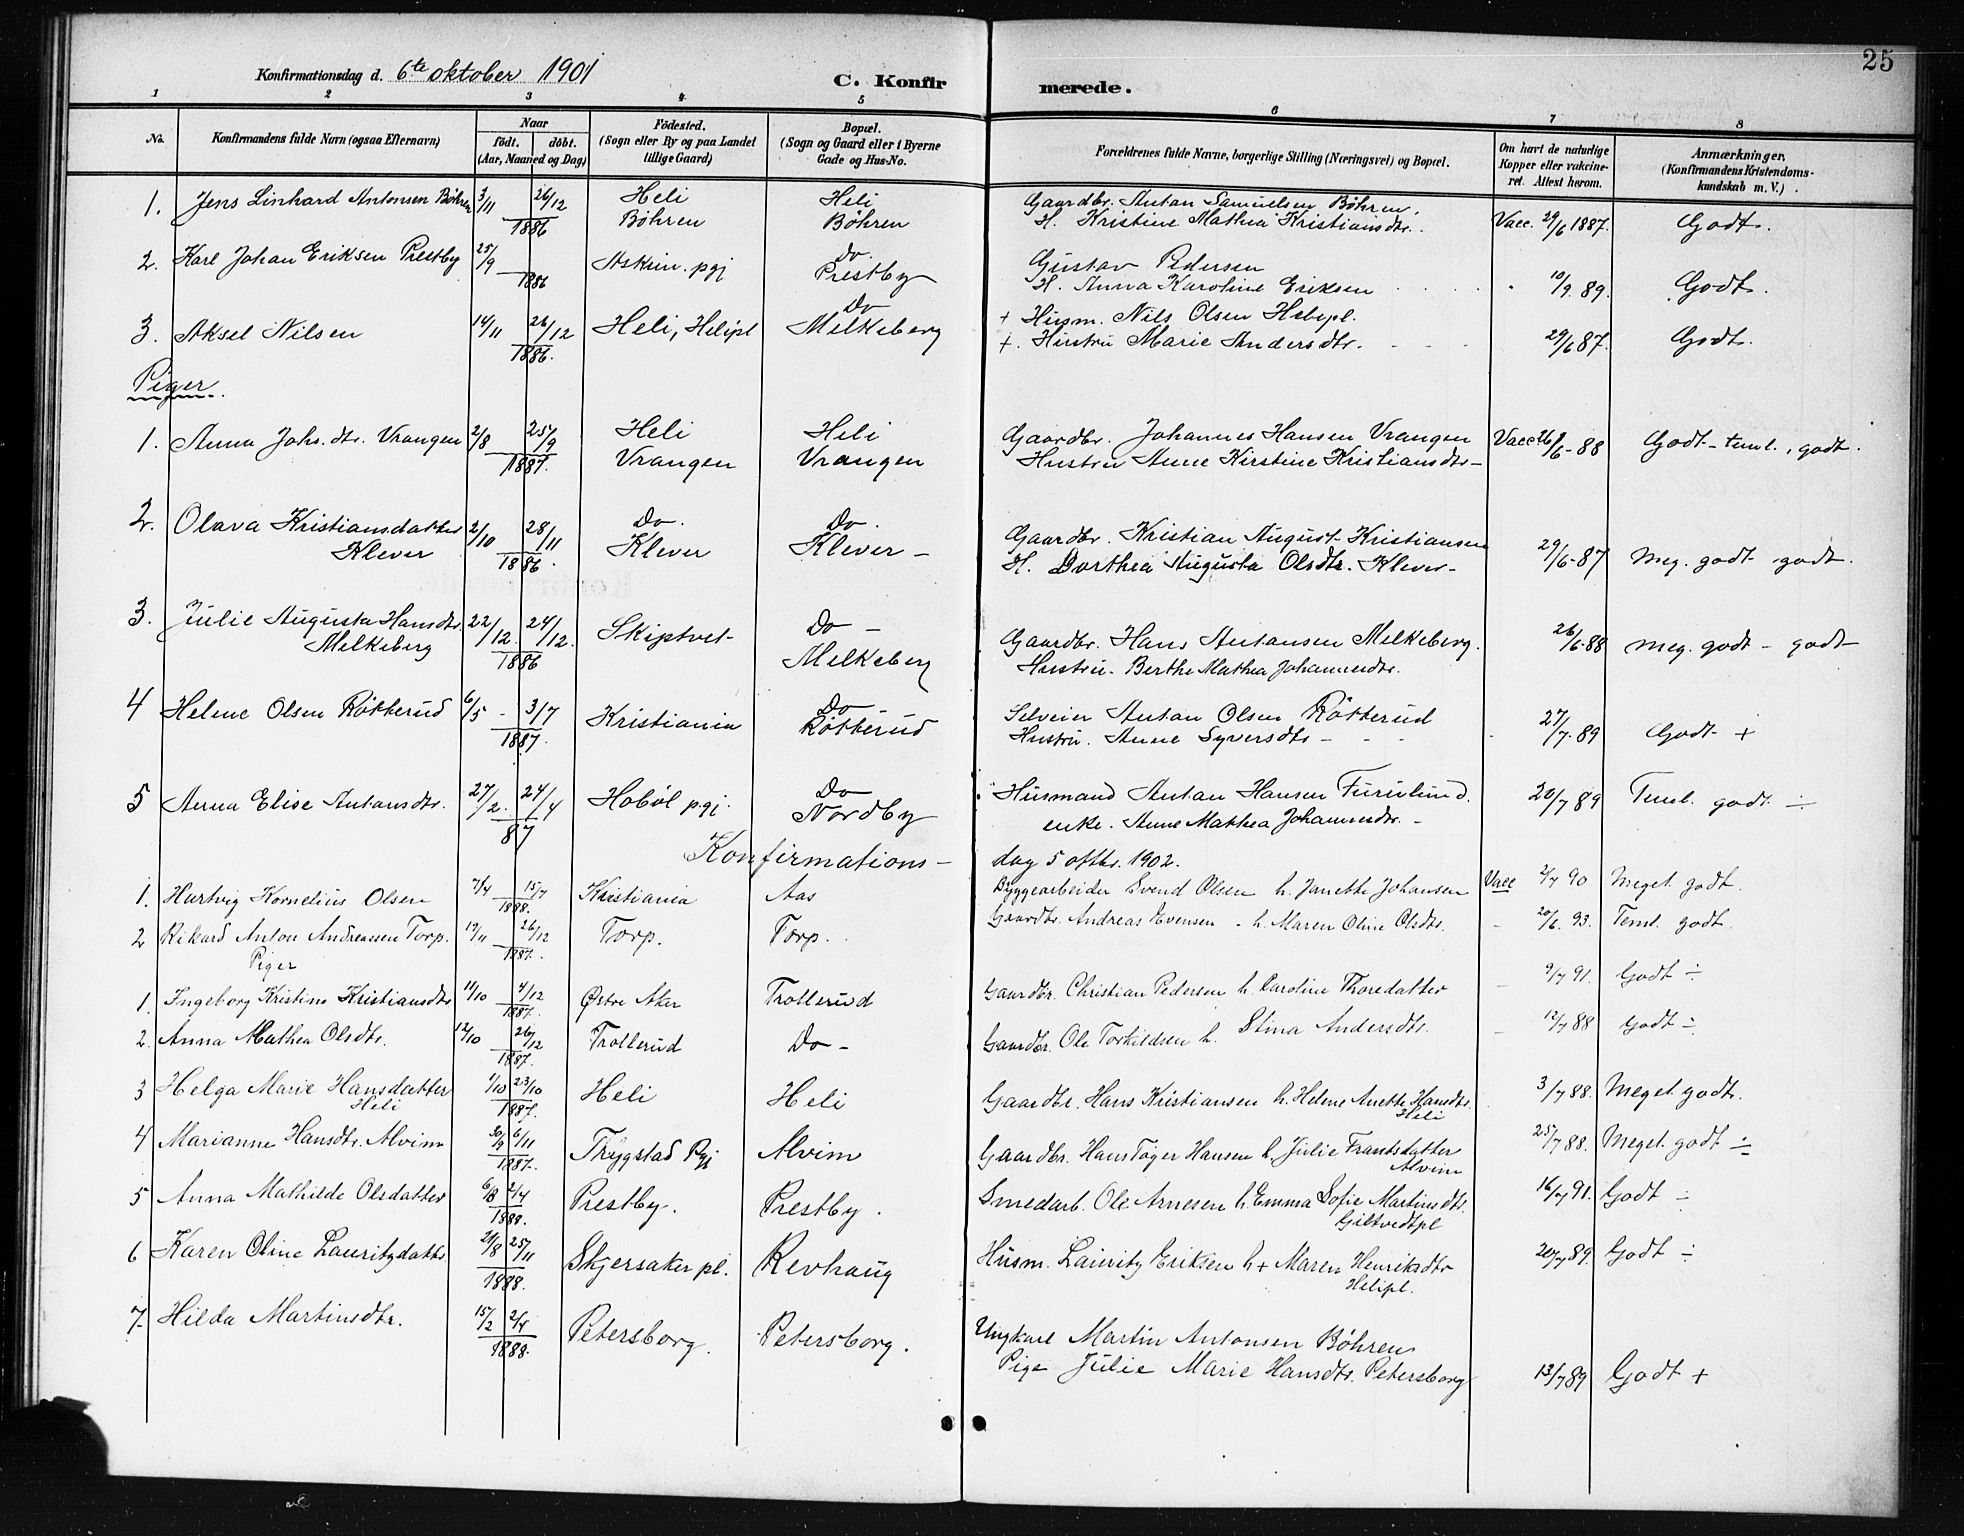 25
Konfirmationsdag d. 6te oktober 1901
C. Konfirmerede.
1 2 3 4 5 6 7 8
No. Konfirmandens fulde Navn (ogsaa Efternavn) Naar født. døbt. (Aar, Maaned og Dag) Fødested. (Sogn eller By og paa Landet tillige Gaard) Bopæl. (Sogn og Gaard eller i Byerne Gade og Hus-No. Forældrenes fulde Navne, borgerlige Stilling (Næringsvei) og Bopæl. Om havt de naturlige Kopper eller vakcineret. Attest herom. Anmærkninger. (Konfirmandens Kristendomskundskab m. V.)
1. Jens Linhard Antonsen Böhren 3/11 26/12 1886 Heli Böhren Heli Böhren Gaardbr. Anton Samuelsen Böhren. H. Kristine Mathea Kristiansdtr. Vacc. 29/6 1887. Godt.
2. Karl Johan Eriksen Prestby 25/9 1886 Askim pgj Do. Prestby Gustav Pedersen H. Anna Karoline Eriksen 10/9. 89. Godt.
3. Aksel Nilsen 14/11 26/12 1886. Heli, Helipl Do Melkeberg + Husm. Nils Olsen Helipl. +. Hustru Marie Andersdtr. 29/6 87. Godt.
Piger.
1. Anna Johs. dtr. Vrangen 2/8 25/9 1887. Heli Vrangen Heli Vrangen Gaardbr. Johannes Hansen Vrangen Hustru Anne Kirstine Kristiansdtr- Vacc 26/6-88 Godt- teml. godt.
2. Olava Kristiansdatter Klever 2/10 28/11 1886. Do. Klever Do. Klever - Gaardbr. Kristian August Kristiansen H. Dorthea Augusta Olsdtr. Klever- 29/6-87 Meg. godt godt.
3. Julie Augusta Hansdtr. Melkeberg 22/12. 24/12. 1886 Skiptvet- Do - Melkeberg Gaardbr. Hans Antonsen Melkeberg. Hustru. Berthe Mathea Johannesdtr. 26/6-88 Meg. godt - godt
4 Helene Olsen Rökkerud 6/5 - 3/7 1887. Kristiania Do Rökkerud Selveier Anton Olsen Rökkerud Hustru. Anne Syversdtr - 27/7-89 Godt +
5 Anna Elise Antonsdtr. 27/2. 24/4 87 Hobøl pgj. Do Nordby Husmand Anton Hansen Furulund. enke. Anne Mathea Johannesdtr. - 20/7 89 Teml. godt ÷
Konfirmations - dag 5 oktbr. 1902.
1. Hartvig Kornelius Olsen 7/4 15/7 1888. Kristiania Aas Byggearbeider Svend Olsen h. Janette Johansen Vacc 2/7 90 Meget godt.
2 Rikard Anton Andreassen Torp. 19/11 26/12 1887. Torp. Torp. Gaardbr. Andreas Evensen - h. Maren Oline Olsdtr. 20/6. 93. Teml. godt.
Piger
1. Ingeborg Kristine Kristiansdtr 11/10 4/12 1887. Østre Aker Trollerud Gaardbr. Christian Pedersen h. Caroline Thoredatter 9/7 91. Godt ÷
2. Anna Mathea Olsdtr. 12/10 26/12 1887. Trollerud Do - Gaardbr. Ole Torkildsen h. Stina Andersdtr. 12/7 88 Godt ÷
3 Helga Marie Hansdatter Heli 1/10 23/10 1887. Heli Heli Gaardbr. Hans Kristiansen h. Helene Anette Hansdtr. Heli 3/7 88. Meget godt.
4 Marianne Hansdtr. Alvim 30/9 6/11 1887. Trygstad Pgj Alvim Gaardbr. Hans Töger Hansen h. Julie Frantsdatter Alvim 25/7 88. Meget godt ÷
5 Anna Mathilde Olsdatter 6/8 2/4 1888. Prestby. Prestby. Smedarb. Ole Arnesen h. Emma Sofie Martinsdtr. Giltvedtpl 16/7 91. Godt ÷
6 Karen Oline Lauritzdatter 21/8 25/11 1888. Skjersaker pl. Revhaug Husm. Lauritz Eriksen h + Maren Henriksdtr Helipl. 20/7 89. Godt ÷
7- Hilda Martinsdtr. 15/2 2/4 1888. Petersborg. Petersborg. Ungkarl Martin Antonsen Böhren Pige Julie Marie Hansdtr. Petersborg 13/7 89 Godt +